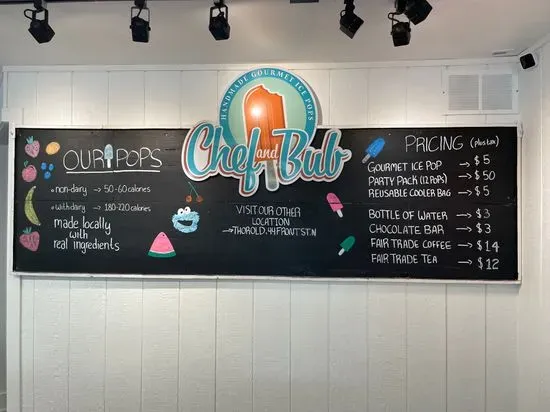 HANDMADE GOURMET ICE POPS
Chef and Bub
OUR POPS
non-dairy → 50-60 calories
with dairy → 180-220 calories
made locally
with
real ingredients
VISIT OUR OTHER
LOCATION
→ THOROLD. 44 FRONT ST. N
PRICING (plus tax)
GOURMET ICE POP → $5
PARTY PACK (12 POPS) → $50
REUSABLE COOLER BAG → $5
BOTTLE OF WATER → $3
CHOCOLATE BAR → $3
FAIR TRADE COFFEE → $14
FAIR TRADE TEA → $12